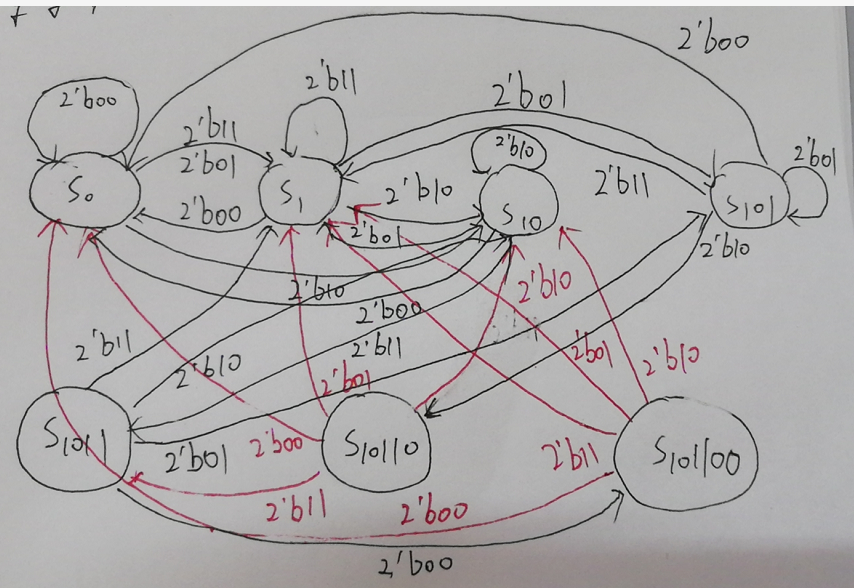 2'b00
2'b11
2'b00
2'b01
2'b11
2'b01
2'b10
2'b01
S0
S1
2'b10
S10
2'b11
S101
2'b00
2'b01
2'b10
2'b10
2'b10
2'b00
2'b11
2'b11
2'b01
2'b10
2'b10
2'b01
S1011
S10110
S101100
2'b01
2'b00
2'b11
2'b11
2'b00
2'b00